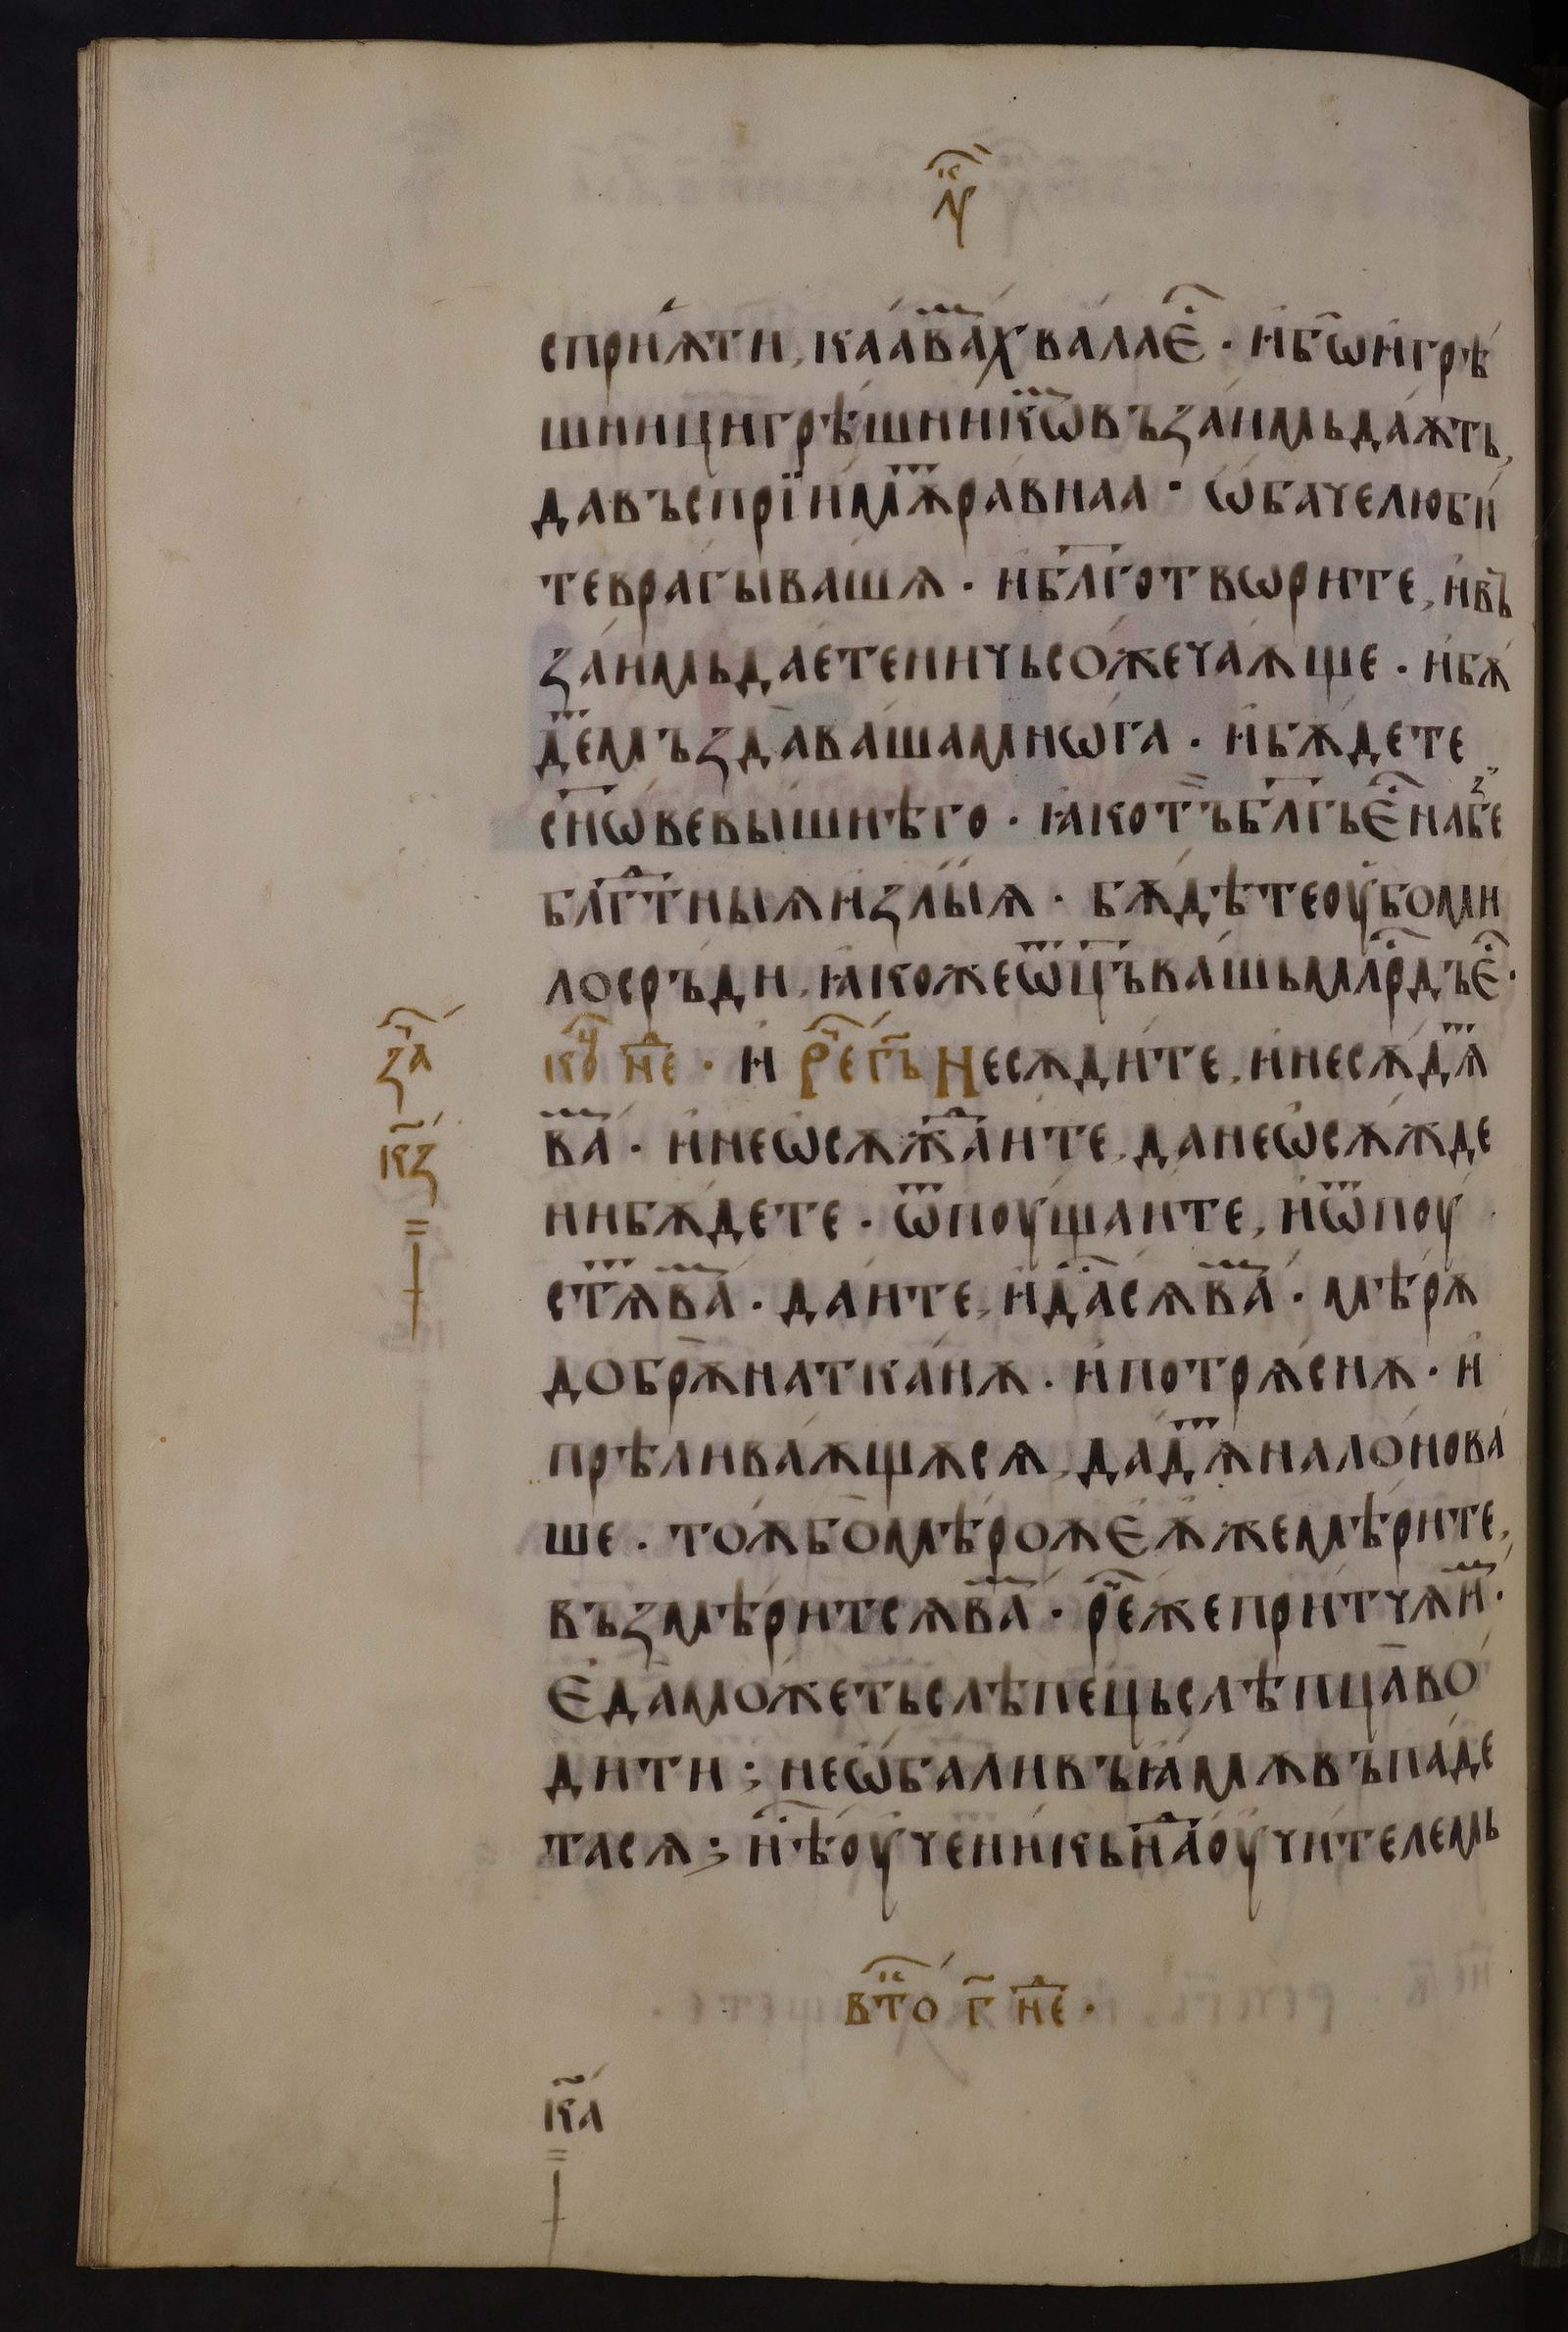 лꙋⷦ҇
сприѧ́ти, каа́ва́ⷨхвала́є҆ⷭ҇ · и҆бѡ҆и҆грѣ́
шницигрѣ́шникѡⷨвъзаи́мьдаѫ́ть,
давъспрїи́мѫⷮра́внаа · ѡ҆ба́челюби́
тевра́гыва́шѧ · и҆бл҃готвори́те, и҆въ
заи́мьдае́теничьсо́жеча́ѫще · и҆бѫ́
деⷮмъздава́шамнѡ́га · и҆бѫ́дете
сн҃ѡвевы́шнѣго · ꙗ҆котъ́бл҃гъє҆ⷭ҇набеⷥ
блг҃ⷣтныѧи҆злы́ѧ · бѫ́дѣтеоу҆боми
лосръ́ди, ꙗ҆кожеѡ҆ц҃ъва́шьмлⷭ҇рдъє҆ⷭ҇ ·
коⷰ҇ нⷣе · и҆ реⷱ҇ гь Несѫди́те, и҆несѫ́дѧⷮ
ваⷨ · и҆неѡ҆сѫжⷣаи́те, данеѡ҆сѫ́жде
нибѫ́дете · ѿпоуща́ите, и҆ѿпоу́
стѧⷮваⷨ · да́ите, и҆даⷭ҇сѧваⷨ · мѣ́рѫ
добрѫ́натка́нѫ · и҆потрѧ́снѫ · и҆
прѣлива́ѫщѫсѧ, дадѧⷮнало́нова́
ше · то́ѫбомѣ́роѫє҆ѫ҆жемѣ́рите,
възмѣ́ритсѧваⷨ · реⷱ҇жепри́тчѫиⷨ ·
Є҆дамо́жетьслѣпе́цьслѣпцаво
ди́ти ; неѡ҆́баливъꙗ́мѫвъпаде́
тасѧ ; нѣⷭ҇оу҆чени́кьнаⷣоу҆чи́телемь
заⷱ҇
к҃з
втоⷬ҇ г҃ нⷣе ·
к҃а